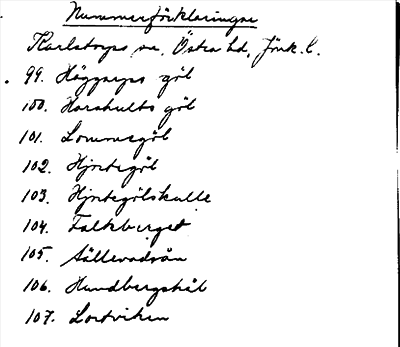 Nummerförklaringar
Karlstorps sn, Östra hd, Jönk. l.
99. Häggarps göl
100. Harahults göl
101. Lommegöl
102. Hjortegöl
103. Hjortegölskulle
104. Falkberget
105. Sällevadsån
106. Hundbergshål
107. Lortviken